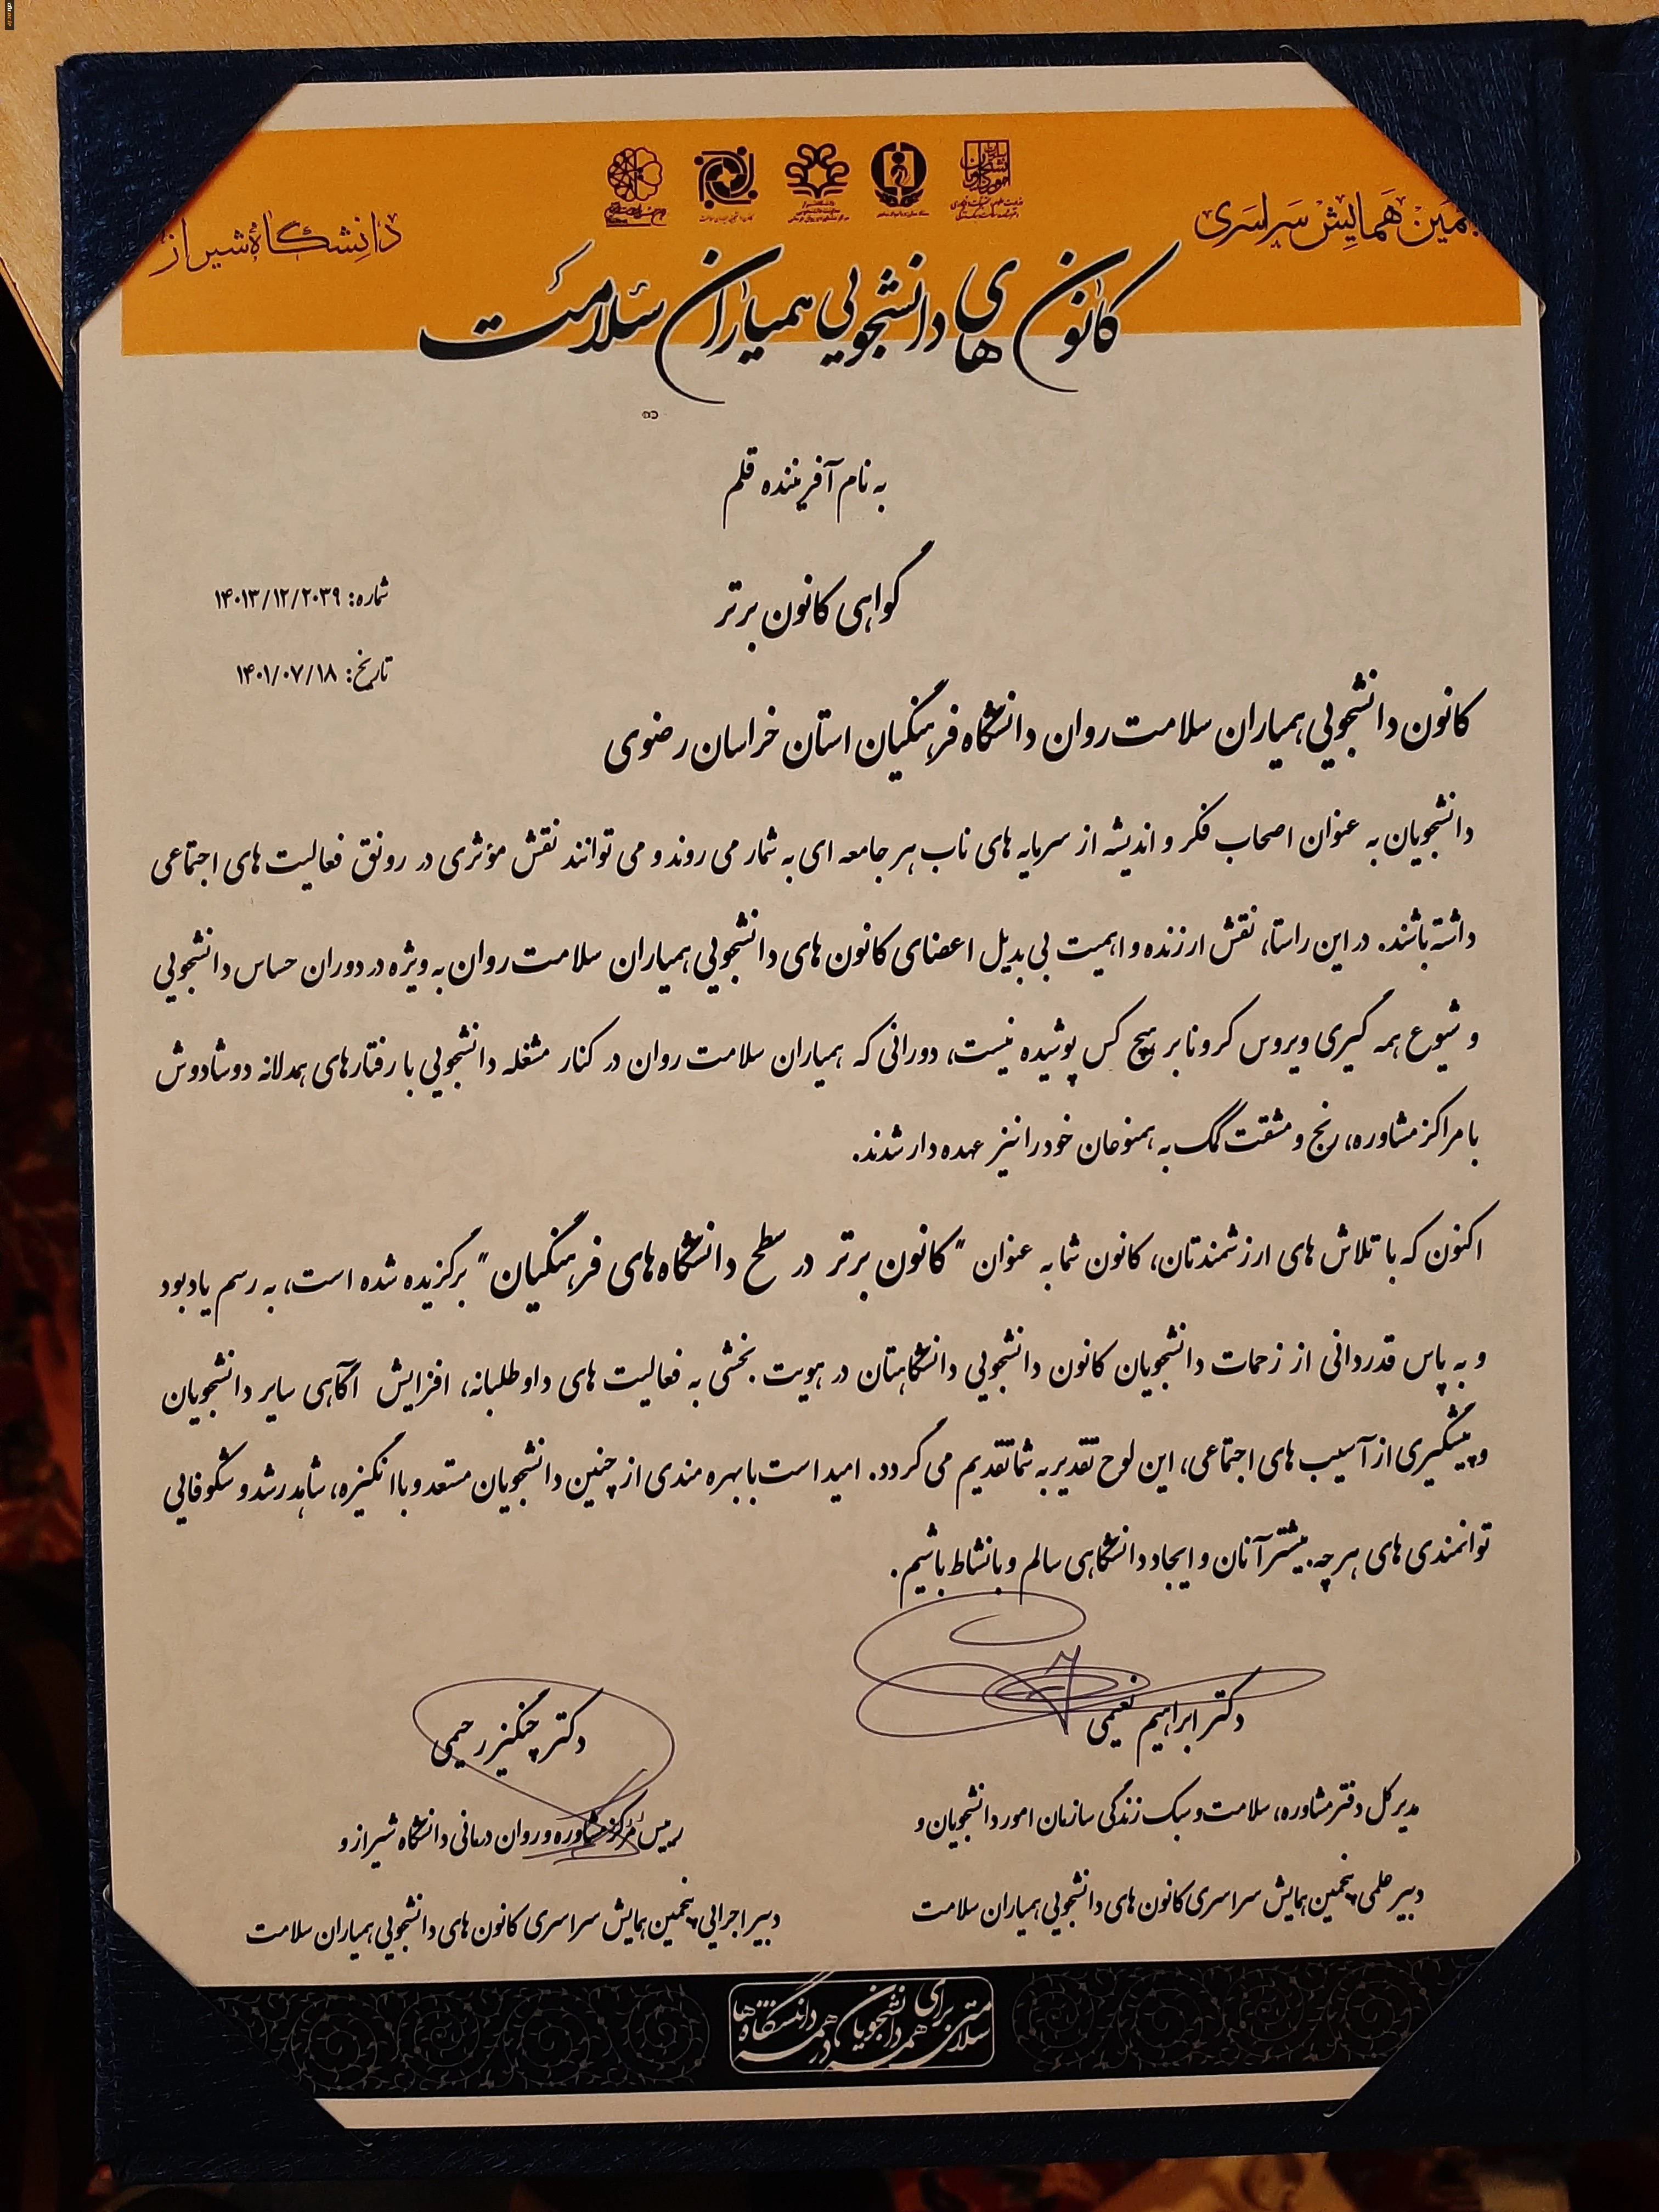 همایش سراسری
دانشگاه شیراز
کانون های دانشجویی همیاران سلامت
به نام آفریننده قلم
گواهی کانون برتر
شماره: ۱۴۰۱۳/۱۲/۲۰۳۹
تاریخ: ۱۴۰۱/۰۷/۱۸
کانون دانشجویی همیاران سلامت روان دانشگاه فرهنگیان استان خراسان رضوی
دانشجویان به عنوان اصحاب فکر و اندیشه از سرمایه های ناب هر جامعه ای به شمار می روند و می توانند نقش مؤثری در رونق فعالیت های اجتماعی
داشته باشند. در این راستا، نقش ارزنده و اهمیت بی بدیل اعضای کانون های دانشجویی همیاران سلامت روان به ویژه در دوران حساس دانشجویی
و شیوع همه گیری ویروس کرونا بر هیچ کس پوشیده نیست، دورانی که همیاران سلامت روان در کنار مشغله دانشجویی با رفتارهای همدلانه دوشادوش
با مراکز مشاوره، رنج و مشقت کمک به همنوعان خود را نیز عهده دار شدند.
اکنون که با تلاش های ارزشمندتان، کانون شما به عنوان "کانون برتر در سطح دانشگاه های فرهنگیان" برگزیده شده است، به رسم یادبود
و به پاس قدردانی از زحمات دانشجویان کانون دانشجویی دانشگاهتان در هویت بخشی به فعالیت های داوطلبانه، افزایش آگاهی سایر دانشجویان
و پیشگیری از آسیب های اجتماعی، این لوح تقدیر به شما تقدیم می گردد. امید است با بهره مندی از چنین دانشجویان مستعد و با انگیزه، شاهد رشد و شکوفایی
توانمندی های هر چه بیشتر آنان و ایجاد دانشگاهی سالم و بانشاط باشیم.
دکتر ابراهیم نعیمی
مدیر کل دفتر مشاوره، سلامت و سبک زندگی سازمان امور دانشجویان و
دبیر علمی پنجمین همایش سراسری کانون های دانشجویی همیاران سلامت
دکتر چنگیز رحیمی
رییس مرکز مشاوره و روان درمانی دانشگاه شیراز و
دبیر اجرایی پنجمین همایش سراسری کانون های دانشجویی همیاران سلامت
سلامتی برای همه دانشجویان در همه دانشگاه ها